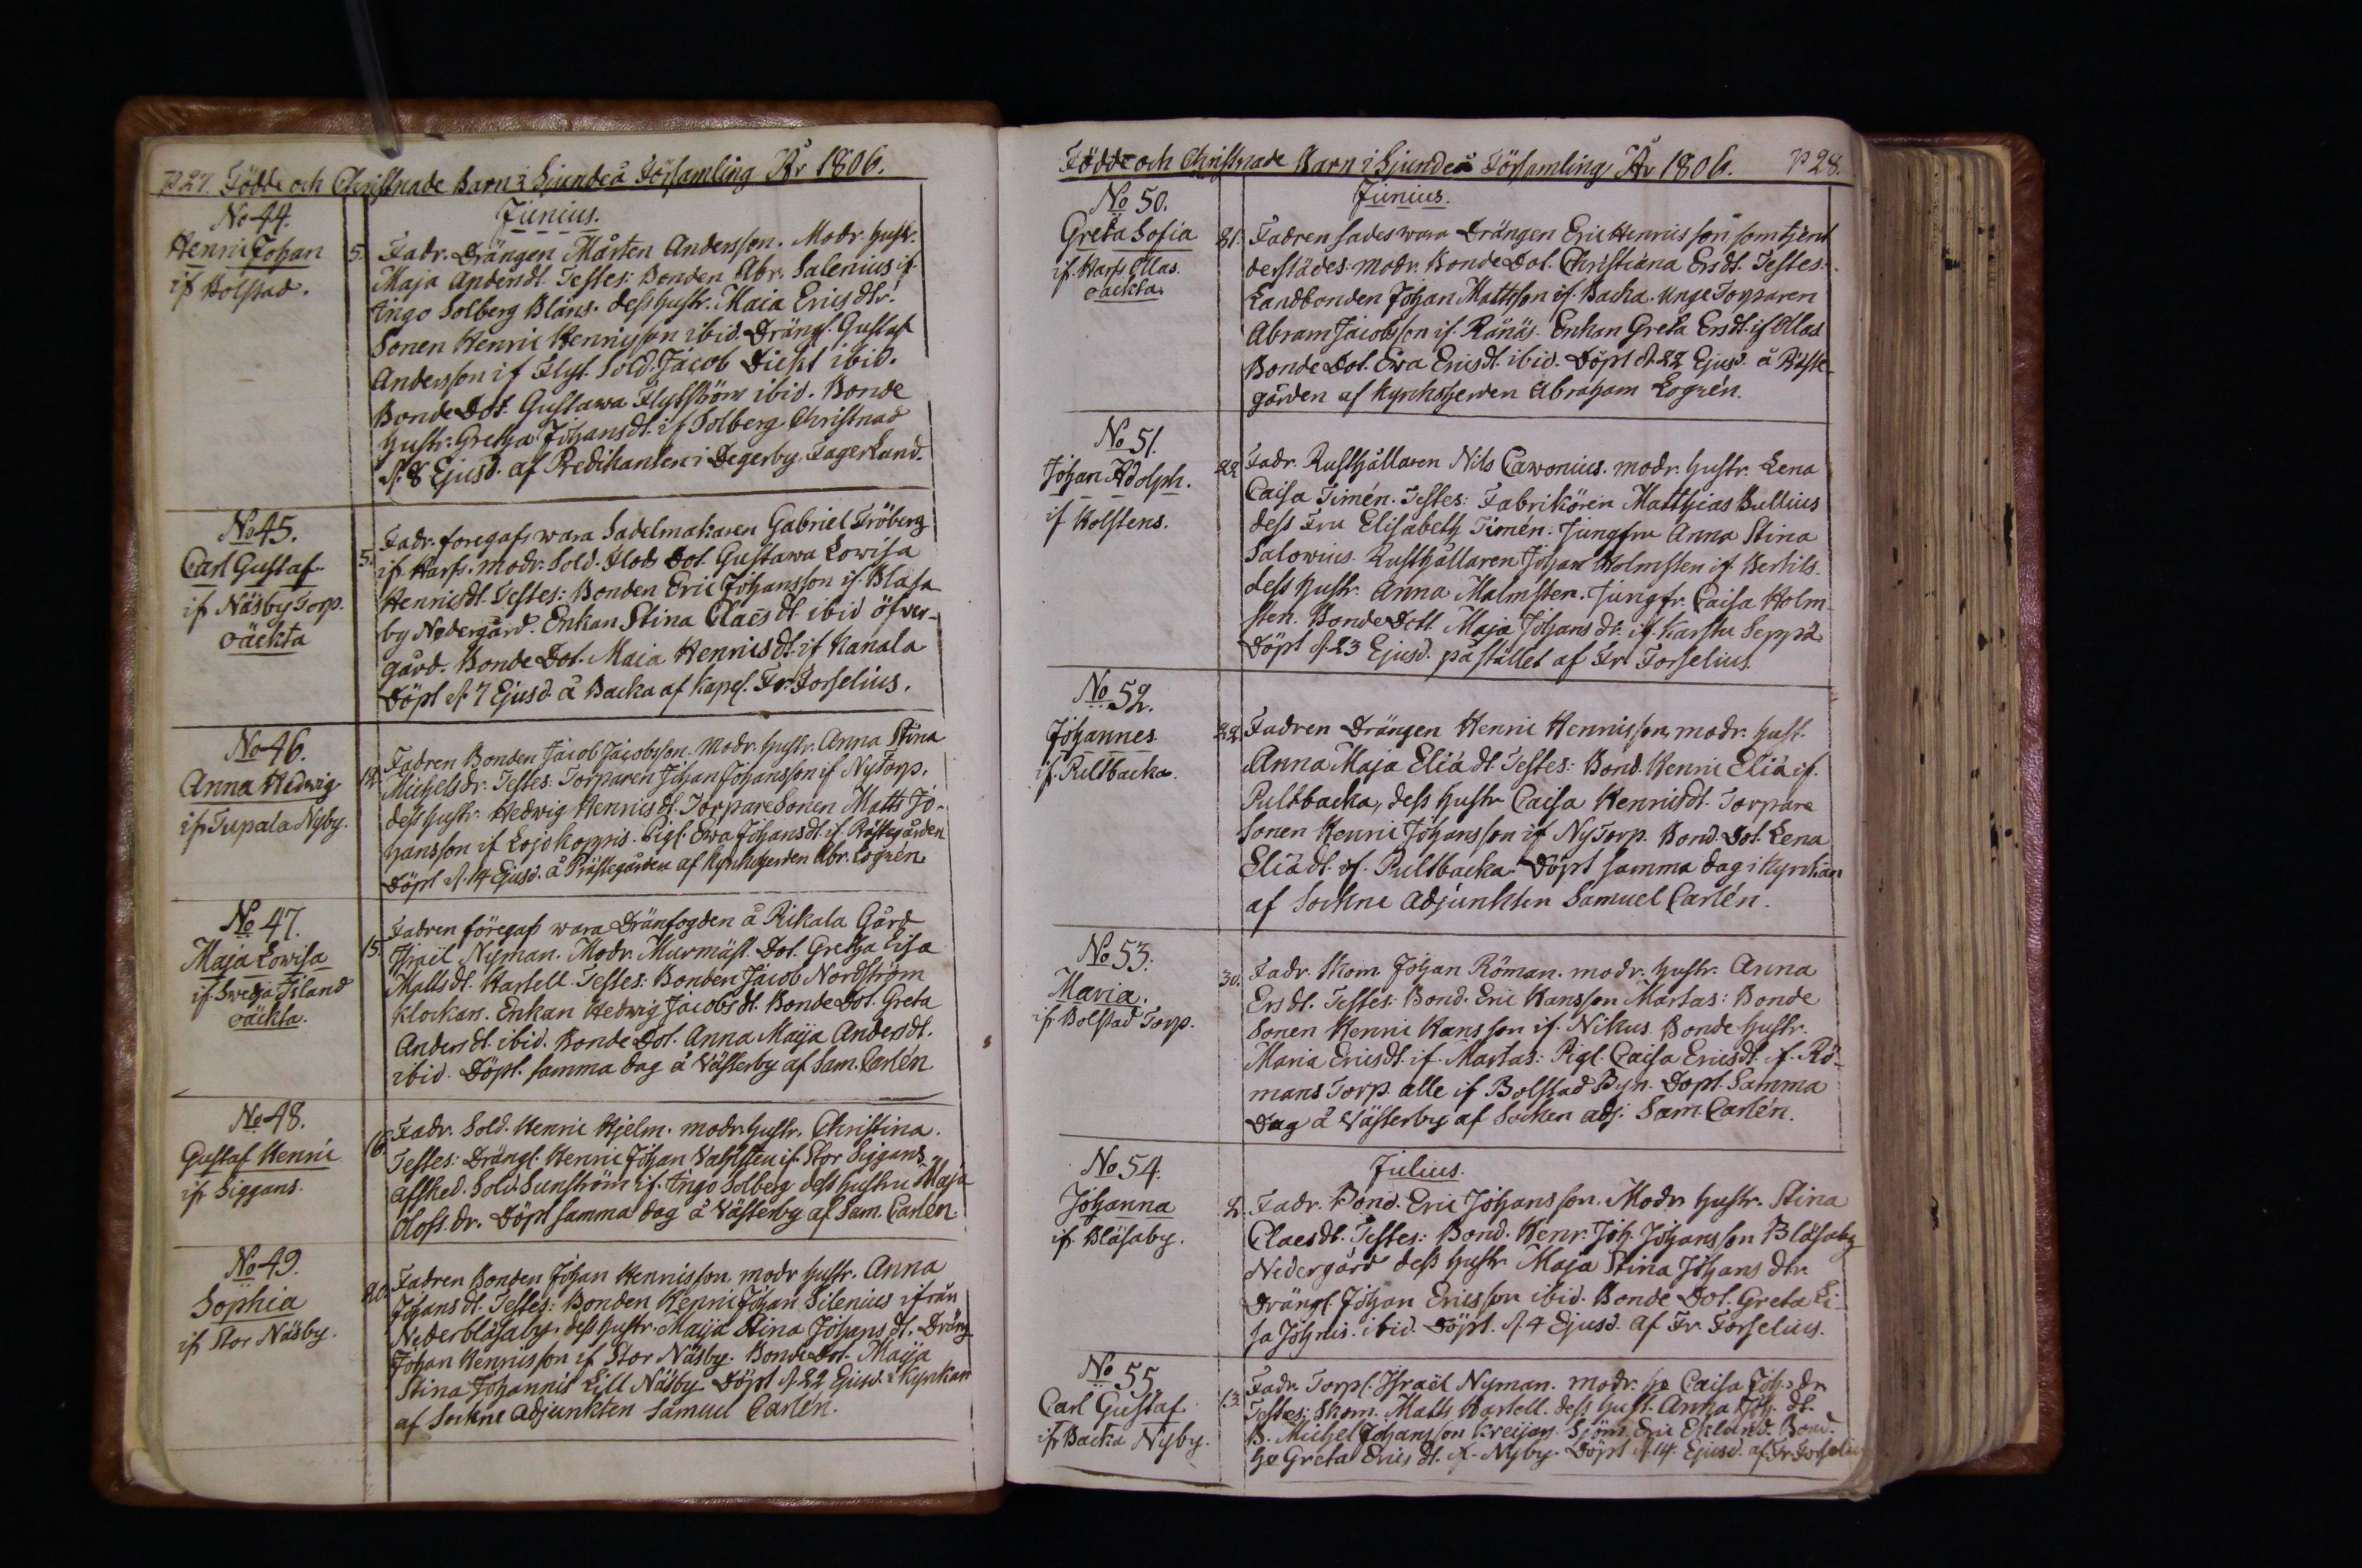 p 27. Födde och Christnade Barn i Sjundeå Församling År 1806.
No 44.
Henric Johan
if Bolstad.
Junius.
5. Fadr. Drängen Mårten Andersson. Modr. hustr.
Maja Andersdt. Testes: Bonden Abr. Salenius if
Ingo Solberg Bläns. dess hustr. Maia Ericsdtr.
Sonen Henric Henricsson ibid. Drängl. Gustaf
Andersson if Flyt. Sold. Jacob Dickt ibid.
Bonde Dot. Gustawa Flytström ibid. Bonde
hustr. Gretha Johansdt. if Solberg. Christnad
d. 8 Ejusd. af Predikanten i Degerby Fagerlund.
No 45.
Carl Gustaf
if Näsby Torp.
oäckta
5. Fadr. foregafs wara Sadelmakaren Gabriel Fröberg
if Harfs. modr. Sold. Flods Dot. Gustawa Lowisa
Henricsdt. Testes: Bonden Eric Johansson if Blåsa
by Nedergård. Enkan Stina Claesdt ibid öfver-
gård. Bonde Dot. Maia Henricsdt. if Kanala
Döpt d. 7 Ejusd. å Backa af Kapel. Fr. Forselius.
No 46.
Anna Hedwig
if Tupala Nyby.
12. Fadren Bonden Jacob Jacobsson. Modr. hustr. Anna Stina
Michelsdr. Testes: Torparen Johan Johansson if Nytorp.
dess hustr. Hedwig Henricsdt. Torpare Sonen Matts Jo-
hansson if Lojo Koppis. Pigl. Ewa Johansdt. if Prästegården
Döpt d. 14 Ejusd. å Prästegården af Kyrkoherden Abr. Logrén.
No 47.
Maja Lowisa
if Swedja Island
oäckta.
15. Fadren föregafs wara Dränfogden å Pikala Gård
Israël Nyman. Modr. Murmäst. Dot. Gretha Lisa
Mattsdt. Hartell. Testes: Bonden Jacob Nordström
Klockars. Enkan Hedwig Jacobsdt. Bonde Dot. Greta
Andersdt. ibid. Bonde Dot. Anna Maija Andersdt.
ibid. Döpt. samma dag å Västerby af Sam. Carlén.
No 48.
Gustaf Henric
if Siggans.
16. Fadr. Sold. Henric Hjelm. modr. hustr. Christina.
Testes: Drängl. Henric Johan Vahlsten if Stor Siggans
afsked. Sold. Sunström if Ingo Solberg dess hustru Maja
Olofs. dr. Döpt samma dag å Västerby af Sam. Carlén.
No 49.
Sophia
if Stor Näsby.
20. Fadren Bonden Johan Henricsson, modr hustr. Anna
Johansdt. Testes: Bonden Henric Johan Silenius ifrån
Nederblåsaby, dess hustr. Maija Stina Johansdt. Dräng
Johan Henricsson if Stor Näsby. Bonde Dot. Maija
Stina Johannis Lill Näsby. Döpt d. 22 Ejusd. i Kyrkan
af Sockne Adjunkten Samuel Carlén.
Födde och Christnade Barn i Sjundeå Församling, År 1806. p 28.
No 50.
Greta Sofia
if Harfs Ollas
oäckta.
Junius.
21. Fadren sades wara Drängen Eric Henricsson som tjent
derstädes. modr. Bonde Dot. Christiana Ersdt. Testes:
Landbonden Johan Mattsson if Backa. unge Torparen
Abram Jacobsson if Rånäs. Enkan Greta Ersdt. if Ollas
Bonde Dot. Ewa Ericsdt. ibid. Döpt d. 22 Ejusd. å Präste-
gården af Kyrkoherden Abraham Logrén.
No 51.
Johan Adolph.
if Holstens.
22. Fadr. Rusthållaren Nils Cawonius. modr. hustr. Lena
Caisa Timén. Testes: Fabrikören Matthias Bullius
dess Fru Elisabeth Timén. Jungfru Anna Stina
Salowius. Rusthållaren Johan Holmsten if Bertils.
dess hustr. Anna Malmsten. Jungfr. Caisa Holm-
sten. Bonde Dott. Maja Johansdt. if Karstu Seppä.
Döpt d. 23 Ejusd. på stället af Fr. Forselius.
No 52.
Johannes
if Pultbacka.
22. Fadren Drängen Henric Henricsson, modr. hust.
Anna Maja Eliædt. Testes: Bond. Henric Eliæ if
Pultbacka, dess hustr Caisa Henricsdt. Torpare
Sonen Henric Johansson if Nytorp. Bond. Dot. Lena
Eliædt. if Pultbacka. Döpt samma dag i Kyrkan
af Sockne Adjunkten Samuel Carlén.
No 53.
Maria.
if Bolstad Torp.
30. Fadr. Skom. Johan Röman. modr. hustr. Anna
Ersdt. Testes: Bond. Eric Hansson Martas: Bonde
Sonen Henric Hansson if Nikus. Bonde hustr.
Maria Ericsdt. if Martas: Pigl. Caisa Ericsdt. if Rö-
mans Torp. alle if Bolstad Byn. Döpt. Samma
Dag å Västerby af Socken adj. Sam. Carlén.
No 54.
Johanna
if Blåsaby.
Julius.
2. Fadr. Bond. Eric Johansson. Modr hustr. Stina
Claesdt. Testes: Bond. Henr. Joh. Johansson Blåsaby
Nedergård dess hustr Maja Stina Johans dtr.
Drängl. Johan Ericsson ibid. Bonde Dot. Greta Li-
sa Johnis. ibid. Döpt. d. 4 Ejusd. af Fr. Forselius.
No 55
Carl Gustaf
if Backa Nyby.
13. Fadr. Torpl. Israël Nyman. modr. ho Caisa Joh. dr
Testes: Skom. Matts Hartell. dess hust. Anna Joh. dt.
B. Michel Johansson Kreijars. Sjöm. Eric Eklund. Bond.
ho Greta Ericsdt. if Nyby. Döpt d. 14 Ejusd. af Fr. Forselius